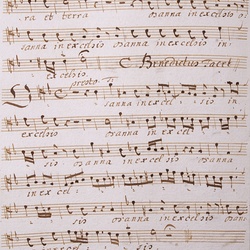 ra et terra osanna in excelsis o
sanna in excelsis osanna in excelsis in
excelsis C. Benedictus Tacet
presto
O sanna in excel sis in
excelsis osanna in excel
sis osanna in excelsis osanna
in excel
sis osanna in excel
sis osanna in excelsis